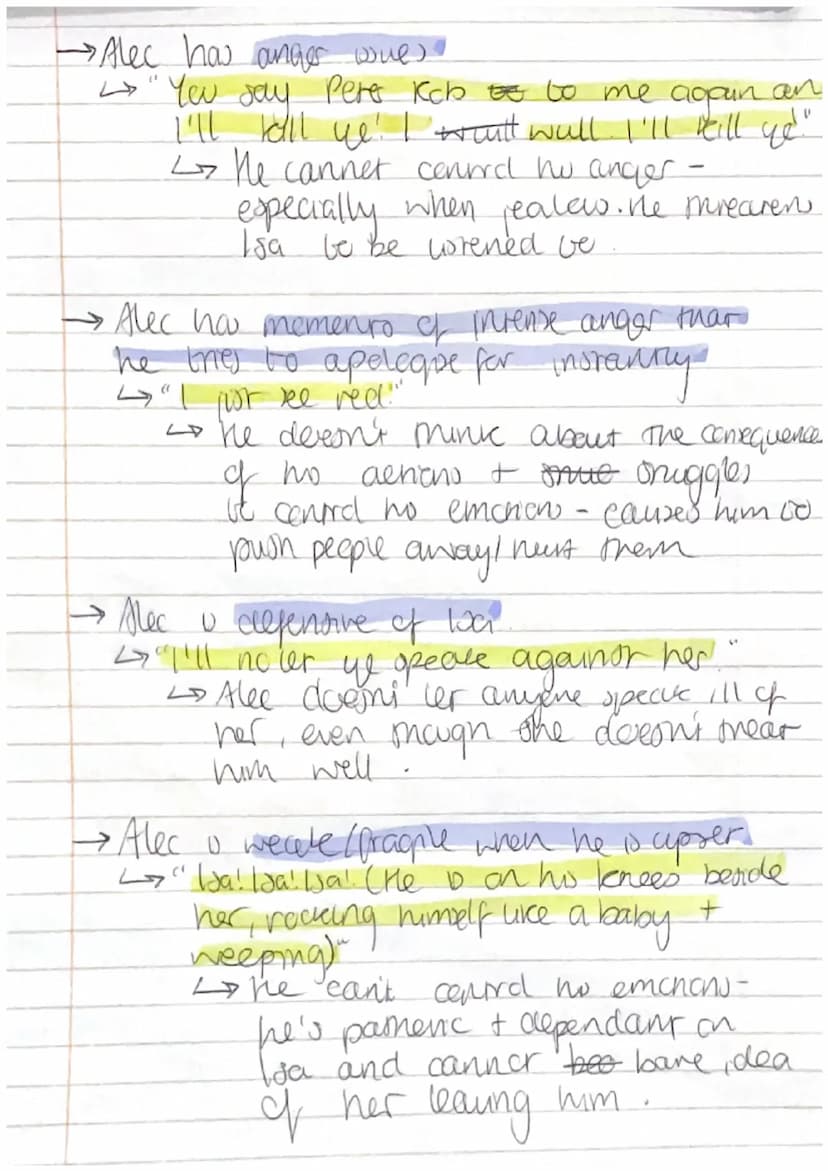 → Alec has anger issues
↳ "You say Peter Robb ~~to~~ to me again an
I'll kill ye! I ~~wull~~ wull. I'll kill ye!"
↳ He cannot control his anger -
especially when jealous. He threatens
Isa to be listened to.
→ Alec has moments of intense anger that
he tries to apologise for instantly
↳ "I just see red!"
↳ He doesn't think about the consequence
of his actions + struggles
to control his emotions - causes him to
push people away / hurt them
→ Alec is defensive of Isa.
↳ "I'll no let ye speak against her."
↳ Alec doesn't let anyone speak ill of
her, even though she doesn't treat
him well.
→ Alec is weak / fragile when he is upset
↳ "Isa! Isa! Isa! (He is on his knees beside
her, rocking himself like a baby +
weeping)"
↳ He can't control his emotions -
he's pathetic + dependant on
Isa and cannot bare idea
of her leaving him.